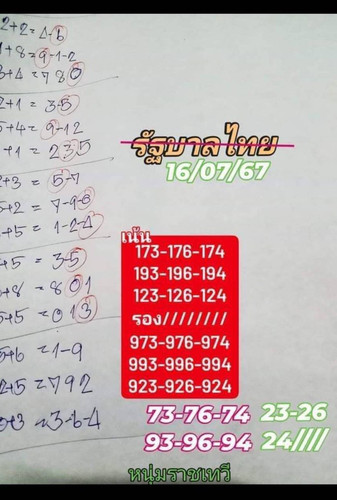 2+2=4-6
1+8=9-1-2
3+4=780
2+1=35
5+4=9-12
+1=235
2+3=5-7
5+2=7-9-8
+5=1-2-4
+5=35
+8=801
5+5=013
5+6=1-9
2+5=792
0+3=3-6-4
รัฐบาลไทย
16/07/67
เน้น
173-176-174
193-196-194
123-126-124
รอง////////
973-976-974
993-996-994
923-926-924
73-76-74 23-26
93-96-94 24////
หนุ่มราชเทวี